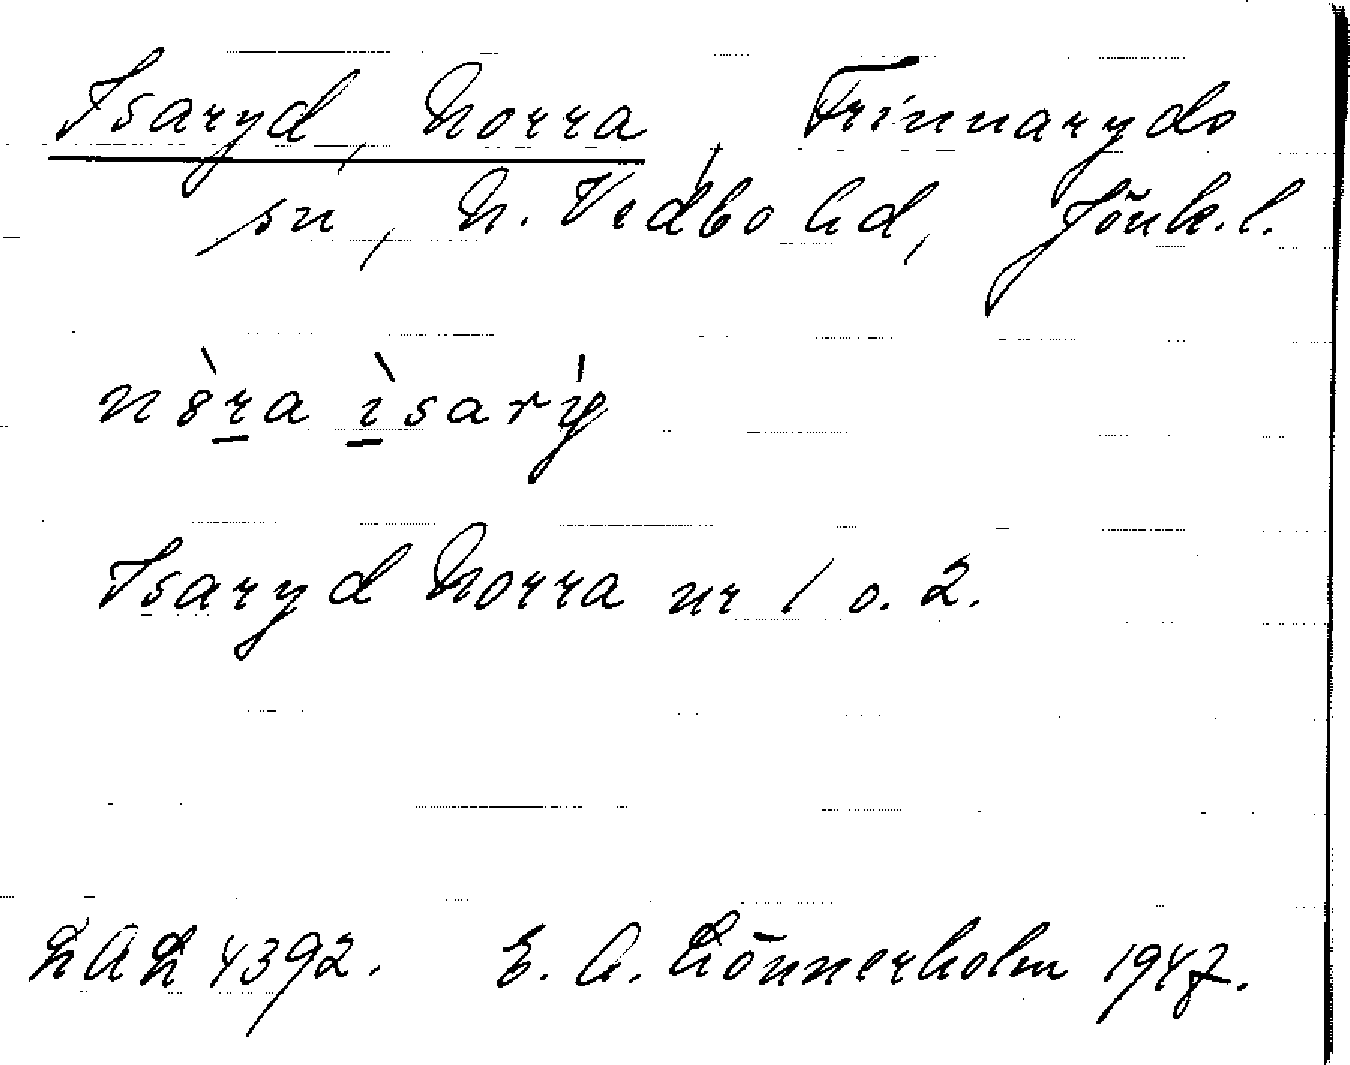 Isaryd, Norra, Frinnaryds
sn, N. Vedbo hd, Jönk. l.
Isaryd Norra nr 1 o. 2.
LAL 4392. E. A. Lönnerholm 1947.